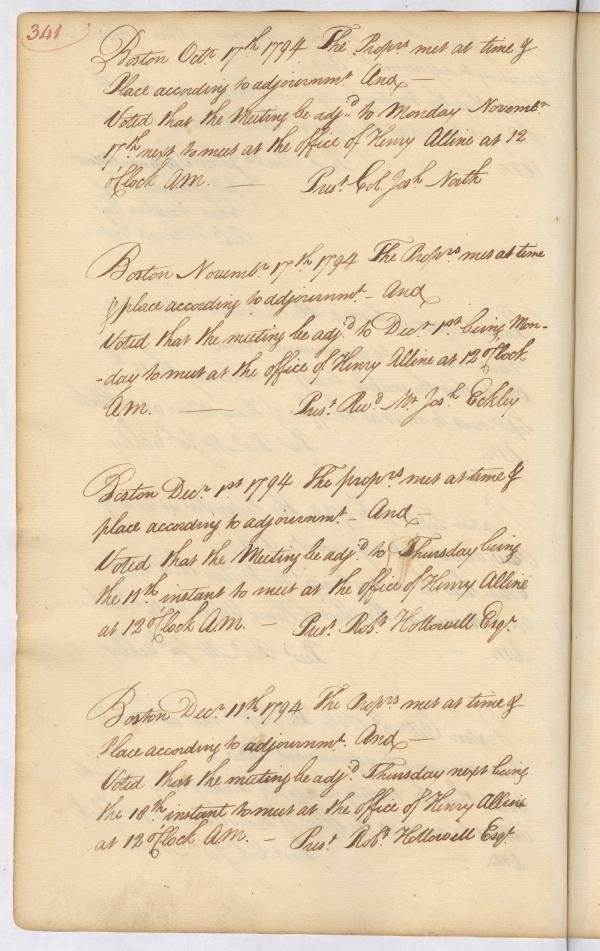 341
Boston Octr. 17th 1794 The Proprs met at time &
Place according to adjournmt. And —
Voted that the Meeting be adjd. to Monday Novembr.
17th. next to meet at the office of Henry Alline at 12
o'Clock A.M. — Prest. Col. Josh. North
Boston Novembr. 17th 1794 The Proprs. met at time
& place according to adjournmt — And
Voted that the meeting be adj'd. to Decr. 1st. being Mon-
-day to meet at the office of Henry Alline at 12 o'Clock
A.M. — Prest. Revd. Mr. Josh. Eckley
Boston Decr. 1st 1794 The proprs met at time &
place according to adjournmt — And
Voted that the Meeting be adj'd. to Thursday being
the 11th instant to meet at the office of Henry Alline
at 12 o'Clock A.M. — Prest. Robt. Hollowell Esqr.
Boston Decr. 11th. 1794 The Proprs met at time &
Place according to adjournmt. And —
Voted that the meeting be adj'd. Thursday next being
the 18th instant to meet at the office of Henry Alline
at 12 o'Clock A.M. — Prest. Robt. Hollowell Esqr.